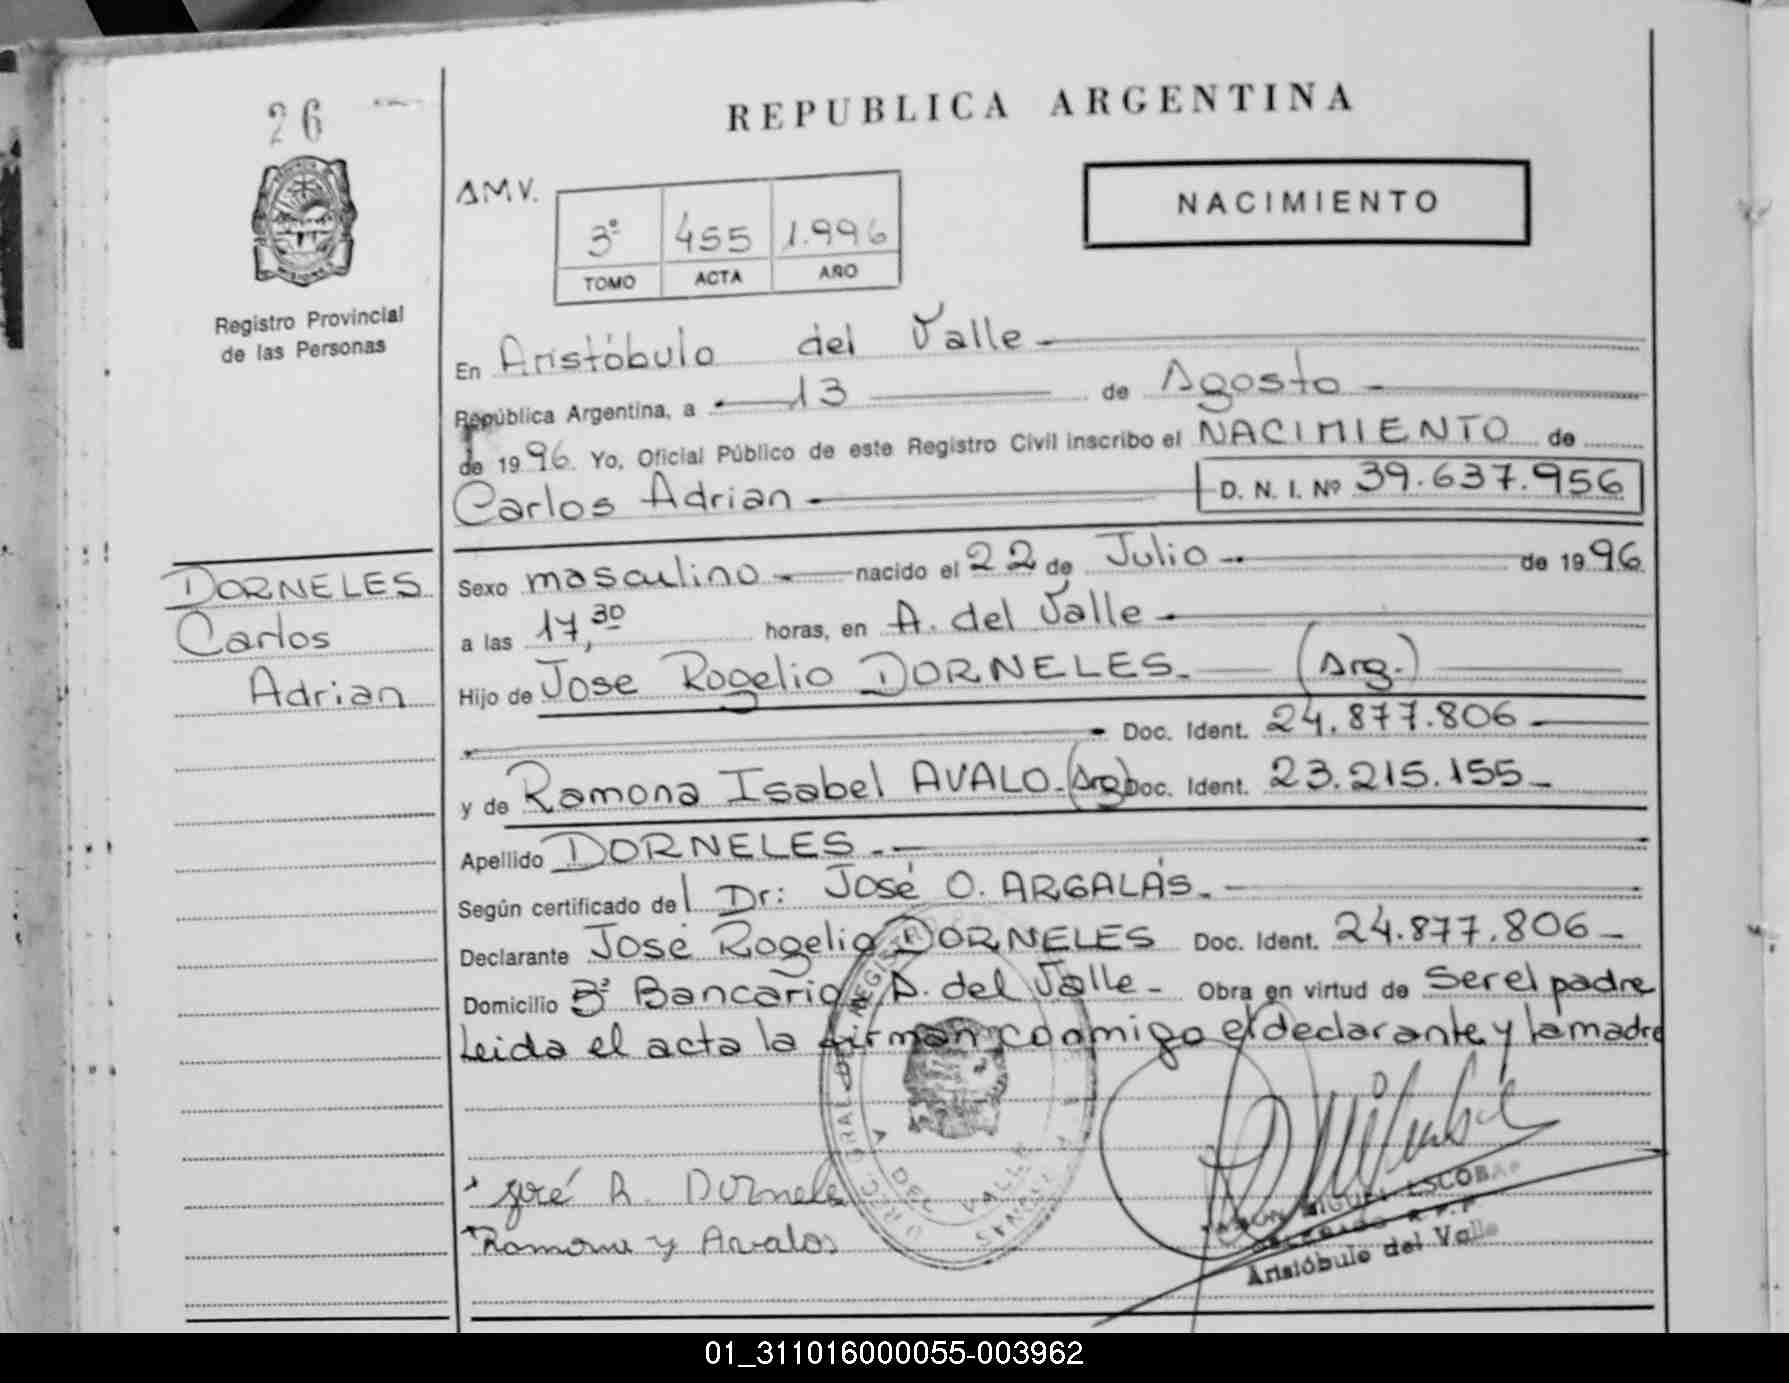 26
REPUBLICA ARGENTINA
AMV.
3º 455 1.996
TOMO ACTA AÑO
NACIMIENTO
Registro Provincial
de las Personas
En Aristóbulo del Valle
República Argentina, a 13 de Agosto
de 1996. Yo, Oficial Público de este Registro Civil inscribo el NACIMIENTO de
Carlos Adrian D. N. I. Nº 39.637.956
DORNELES
Carlos
Adrian
Sexo masculino nacido el 22 de Julio de 1996
a las 17,30 horas, en A. del Valle
Hijo de Jose Rogelio DORNELES. (Arg.)
Doc. Ident. 24.877.806
y de Ramona Isabel AVALO. (Arg) Doc. Ident. 23.215.155
Apellido DORNELES.
Según certificado del Dr: José O. ARGALÁS.
Declarante José Rogelio DORNELES Doc. Ident. 24.877.806
Domicilio Bº Bancario, A. del Valle Obra en virtud de Ser el padre
Leida el acta la firman conmigo el declarante y la madre
José R. Dornele
Ramona y Avalos
MIGUEL ESCOBAR
Aristóbulo del Valle
01_311016000055-003962